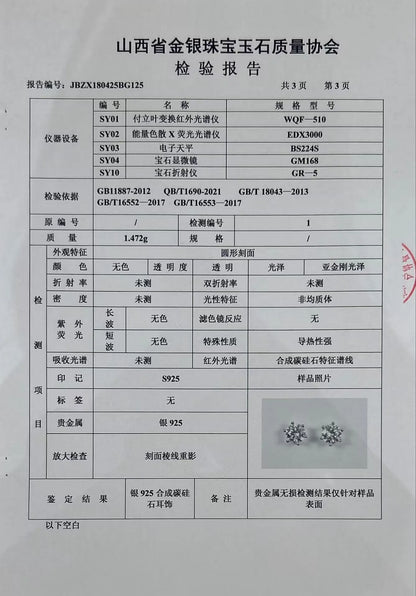 山西省金银珠宝玉石质量协会
检 验 报 告
报告编号：JBZX180425BG125 共 3 页 第 3 页
仪器设备 编 号 名 称 规 格 型 号
SY01 付立叶变换红外光谱仪 WQF—510
SY02 能量色散 X 荧光光谱仪 EDX3000
SY03 电子天平 BS224S
SY04 宝石显微镜 GM168
SY10 宝石折射仪 GR—5
检验依据 GB11887-2012 QB/T1690-2021 GB/T 18043—2013
GB/T16552—2017 GB/T16553—2017
原 编 号 / 检测编号 1
质 量 1.472g 规 格 /
检 测 项 目
外观特征 圆形刻面
颜 色 无色 透 明 度 透明 光泽 亚金刚光泽
折 射 率 未测 双折射率 未测
密 度 未测 光性特征 非均质体
紫 外 荧 光 长 波 无色 滤色镜反应 无
短 波 无色 特殊性质 导热性强
吸收光谱 未测 红外光谱 合成碳硅石特征谱线
印 记 S925 样品照片
标 签 无
贵金属 银 925
放大检查 刻面棱线重影
鉴 定 结 果 银 925 合成碳硅石耳饰 备 注 贵金属无损检测结果仅针对样品表面
以下空白